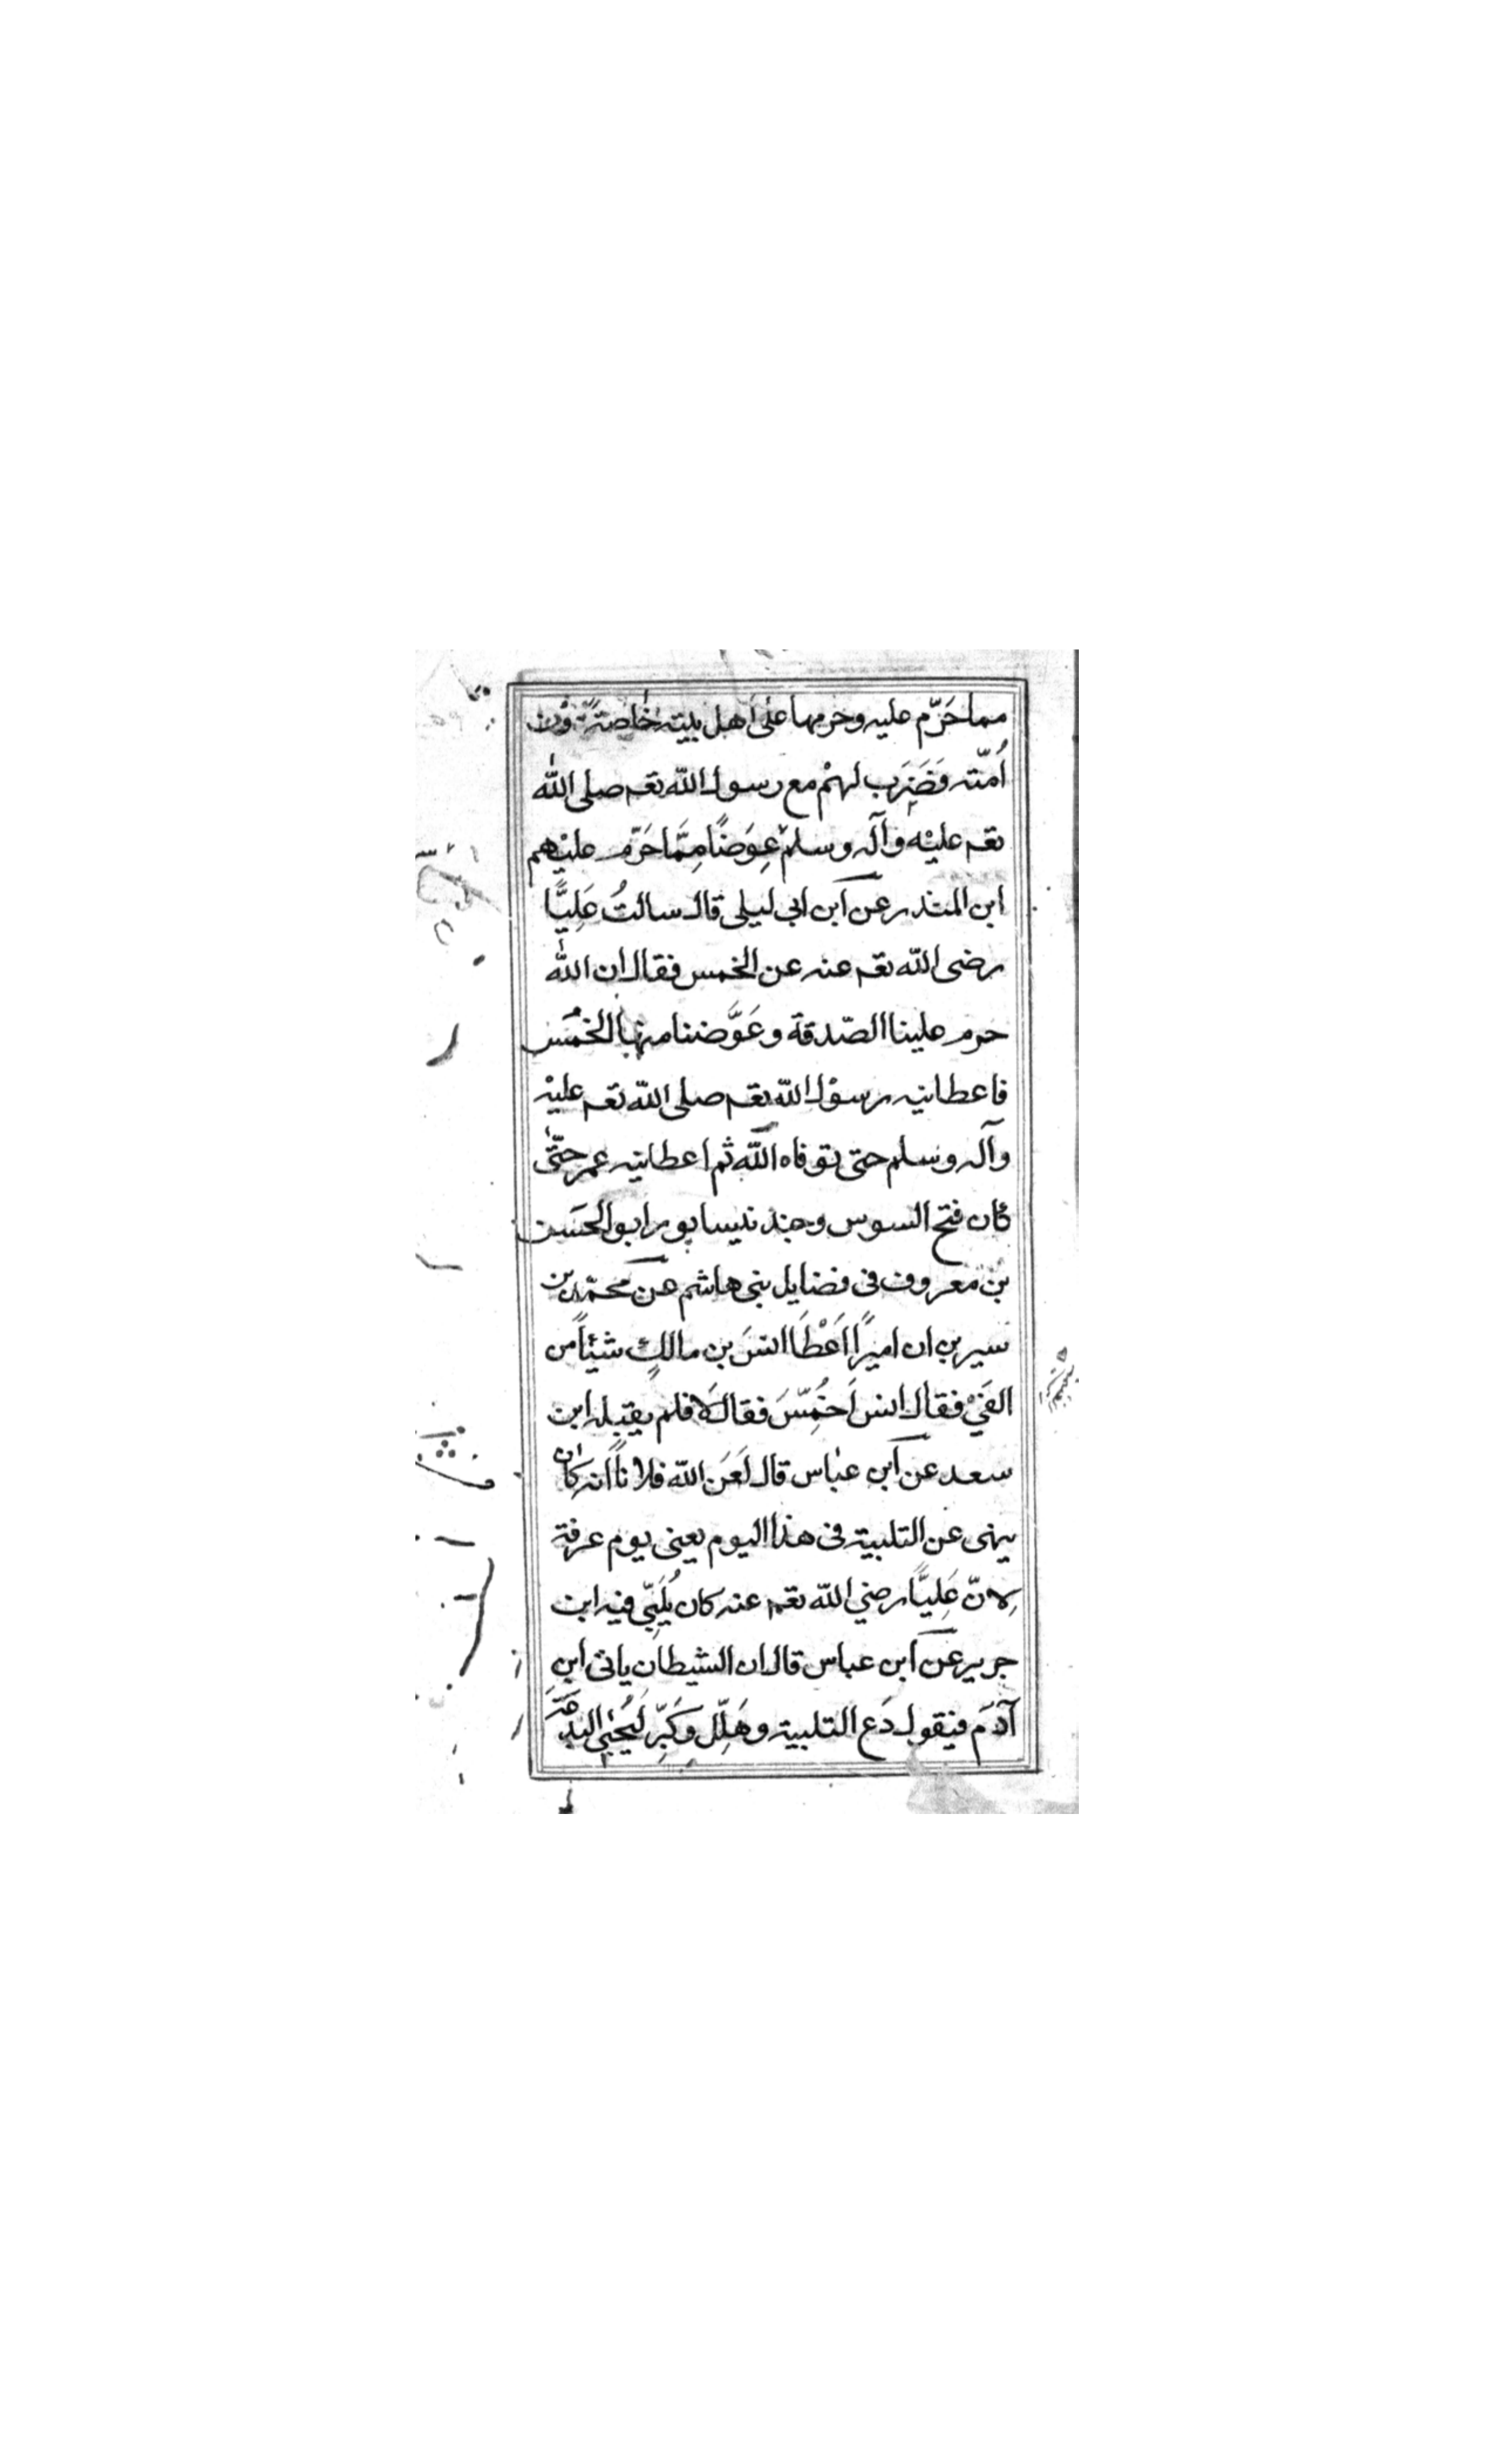 مما حَرّم عليه وحرمها على اهل بيته خاصةً دون
اُمّته فَضَرَب لهمْ مع رسول الله تعـ صلى الله
تعـ عليْه وآله وسلم عِوَضًا مِمَّا حَرّم عليْهم
ابن المنذر عن ابن ابى ليلى قال سالتُ عَلِيًّا
رضى الله تعـ عنه عن الخمس فقال ان الله
حرم علينا الصّدقة وعَوَّضنا منها الخمُسَ
فاعطانيه رسوْل الله تعـ صلى الله تعـ عليْه
وآله وسلم حتى توفاه اللّه ثم اعطانيه عمر حتّى
كان فتح السوس وجند نيسابور ابو الحسَن
بن معروف فى فضايل بنى هاشم عن محمّد بن
سيرين ان اميرًا اَعْطَا انسَ بن مالكٍ شيْئًا من
الفَيْ فقال انس اَخُمِّسَ فقال لَا فلم يقبله ابن
سعد عن ابن عباس قال لَعَن الله فلانًا انه كان
ينهى عن التلبية فى هذا اليوم يعنى يوم عرفة
لِانّ عَلِيًّا رضي الله تعـ عنه كان يُلَبّى فيه ابن
جرير عن ابن عباس قال ان الشيطان ياتى ابنِ
آدَم فيقول دَع التلبية وهَلِّل وكَبِّر